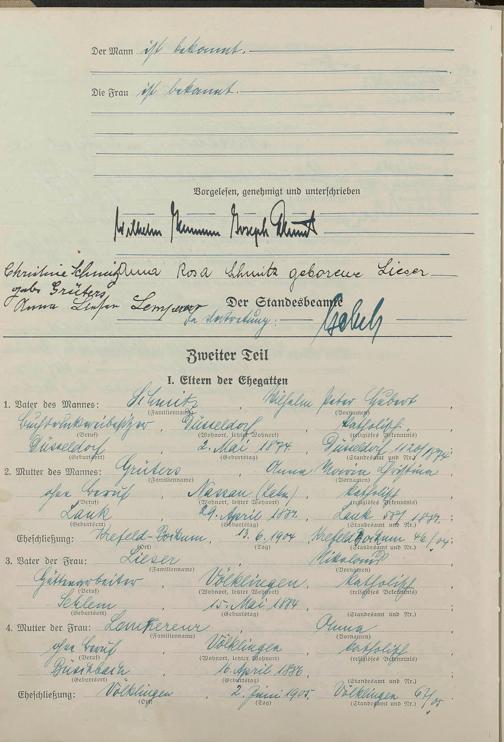 Der Mann ist bekannt.
Die Frau ist bekannt.
Vorgelesen, genehmigt und unterschrieben
Wilhelm Hermann Joseph Schmitz
Christine Schmitz Anna Rosa Schmitz geborene Lieser
geb. Grüters
Anna Lieser Der Standesbeamte
In Vertretung:
Zweiter Teil
I. Eltern der Ehegatten
1. Vater des Mannes: Schmitz, Wilhelm Peter Hubert,
(Familienname) (Vornamen)
Düsseldorf, katholisch.
(Beruf) (Wohnort, letzter Wohnort) (religiöses Bekenntnis)
Düsseldorf 2. Mai 1874 Düsseldorf 1120/1874
(Geburtsort) (Geburtstag) (Standesamt und Nr.)
2. Mutter des Mannes: Grüters, Anna
(Familienname) (Vornamen)
ohne Beruf, Nassau (Lahn), katholisch
(Beruf) (Wohnort, letzter Wohnort) (religiöses Bekenntnis)
Lank 29. April 1882, Lank 1882;
(Geburtsort) (Geburtstag) (Standesamt und Nr.)
Eheschließung: Krefeld-Bockum, 13.6.1904 Krefeld-Bockum 46/04.
(Ort) (Tag) (Standesamt und Nr.)
3. Vater der Frau: Lieser, Nikolaus
(Familienname) (Vornamen)
Hüttenarbeiter, Völklingen, katholisch
(Beruf) (Wohnort, letzter Wohnort) (religiöses Bekenntnis)
15. Mai 1874
(Geburtsort) (Geburtstag) (Standesamt und Nr.)
4. Mutter der Frau: Anna
(Familienname) (Vornamen)
ohne Beruf, Völklingen, katholisch
(Beruf) (Wohnort, letzter Wohnort) (religiöses Bekenntnis)
16. April 1886
(Geburtsort) (Geburtstag) (Standesamt und Nr.)
Eheschließung: Völklingen, 2. Juni 1905, Völklingen 67/05
(Ort) (Tag) (Standesamt und Nr.)